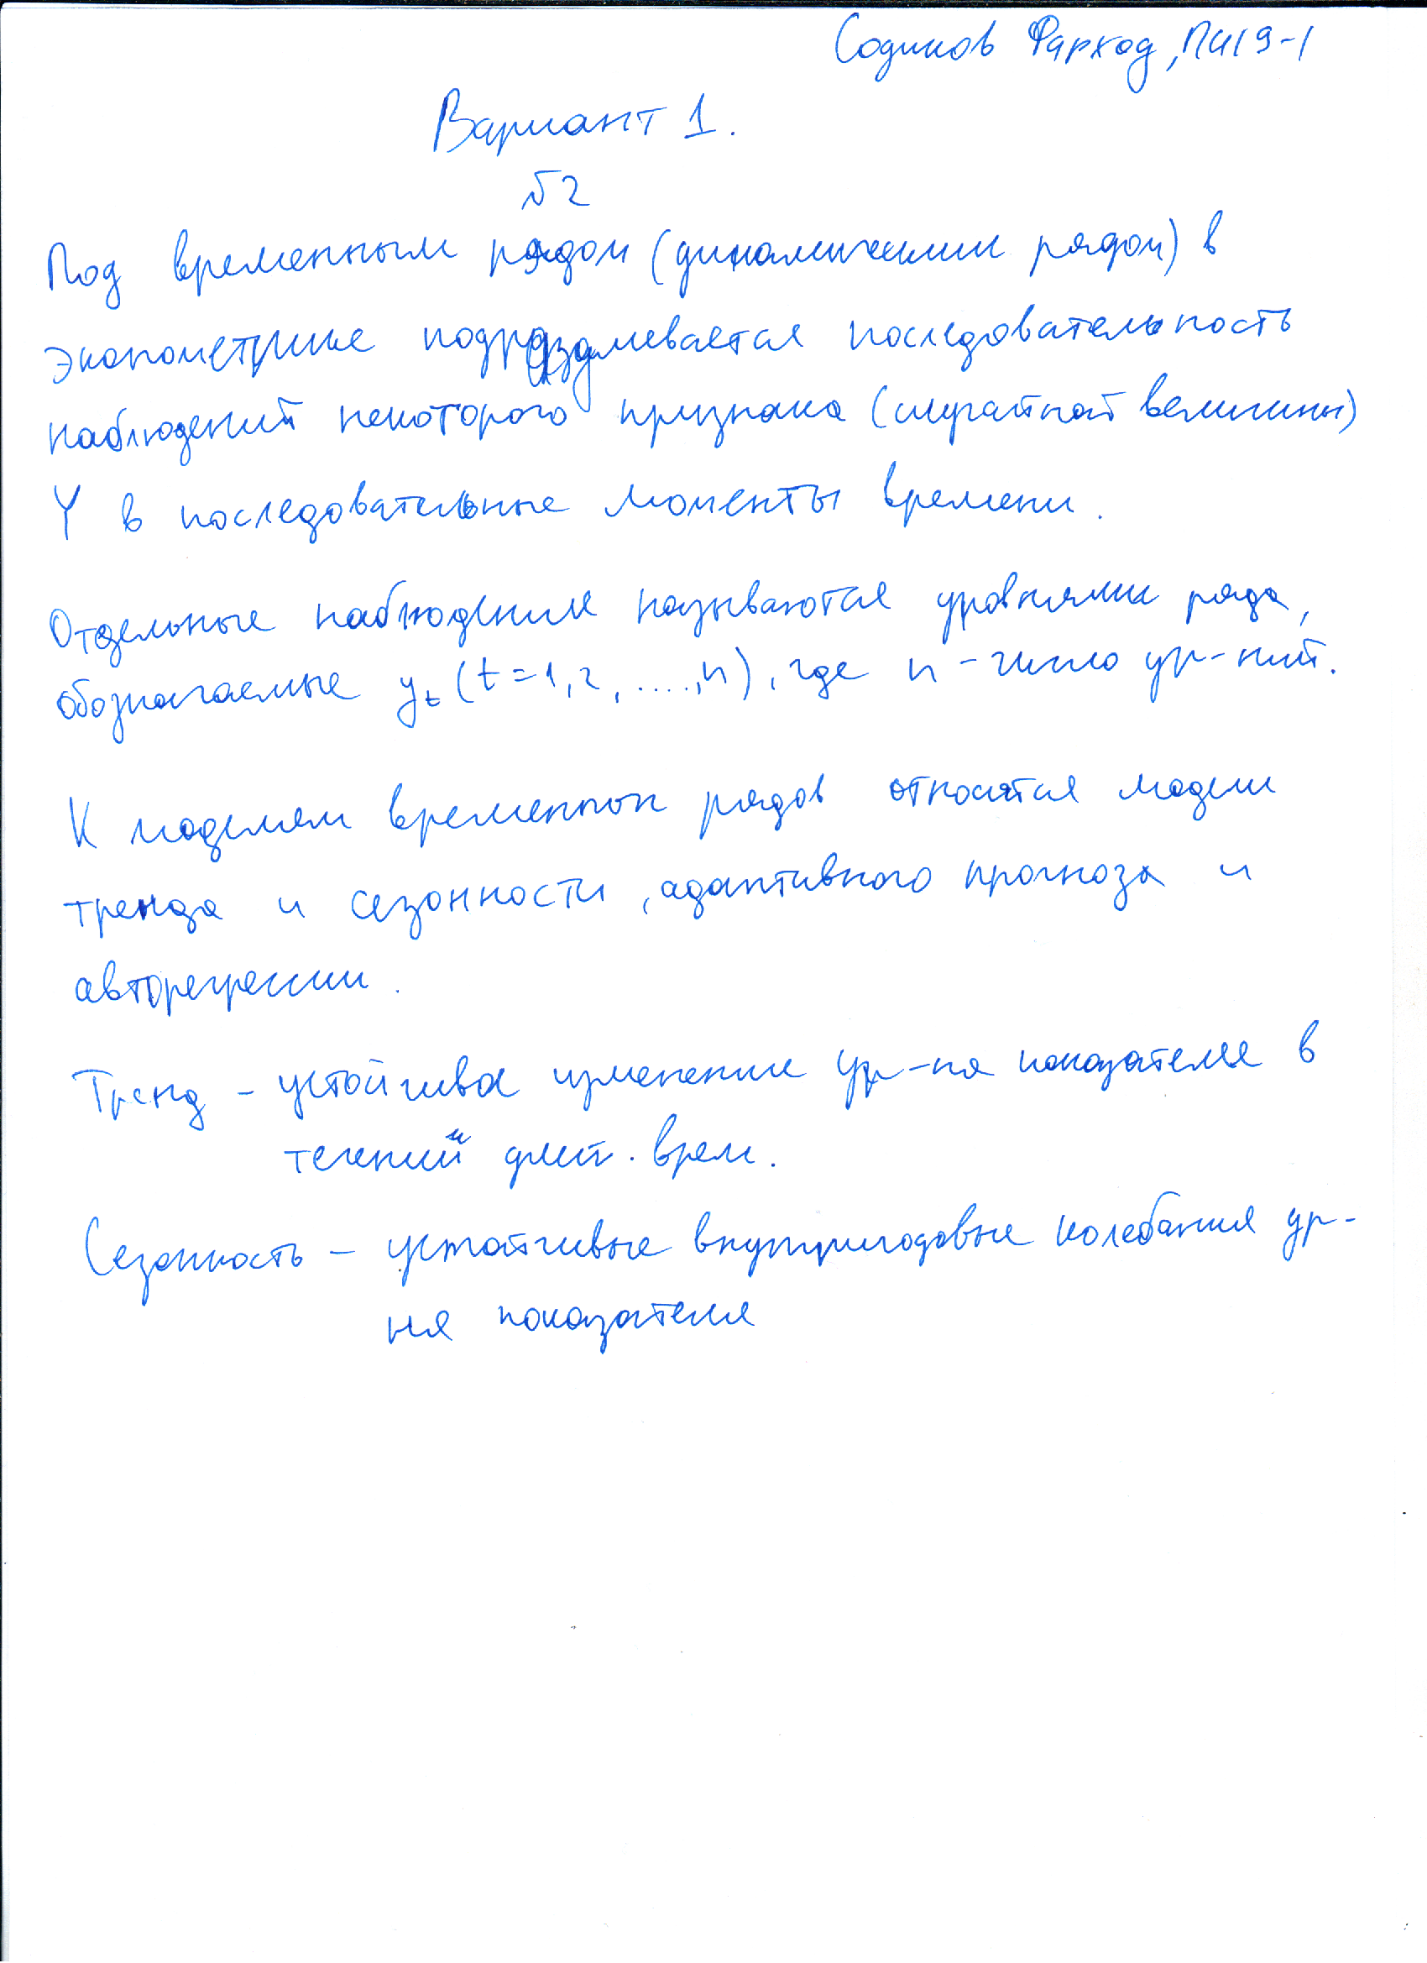 Содиков Фарход, ПИ19-1
Вариант 1.
№2
Под временным рядом (динамическим рядом) в
эконометрике подразумевается последовательность
наблюдений некоторого признака (случайной величины)
Y в последовательные моменты времени.
Отдельные наблюдения называются уровнями ряда,
обозначаемые yt (t=1,2,....,n), где n - число ур-ний.
К моделям временных рядов относятся модели
тренда и сезонности, адаптивного прогноза и
авторегрессии.
Тренд - устойчивое изменение ур-ня показателя в
течении длит. врем.
Сезонность - устойчивые внутригодовые колебания ур-
ня показателя